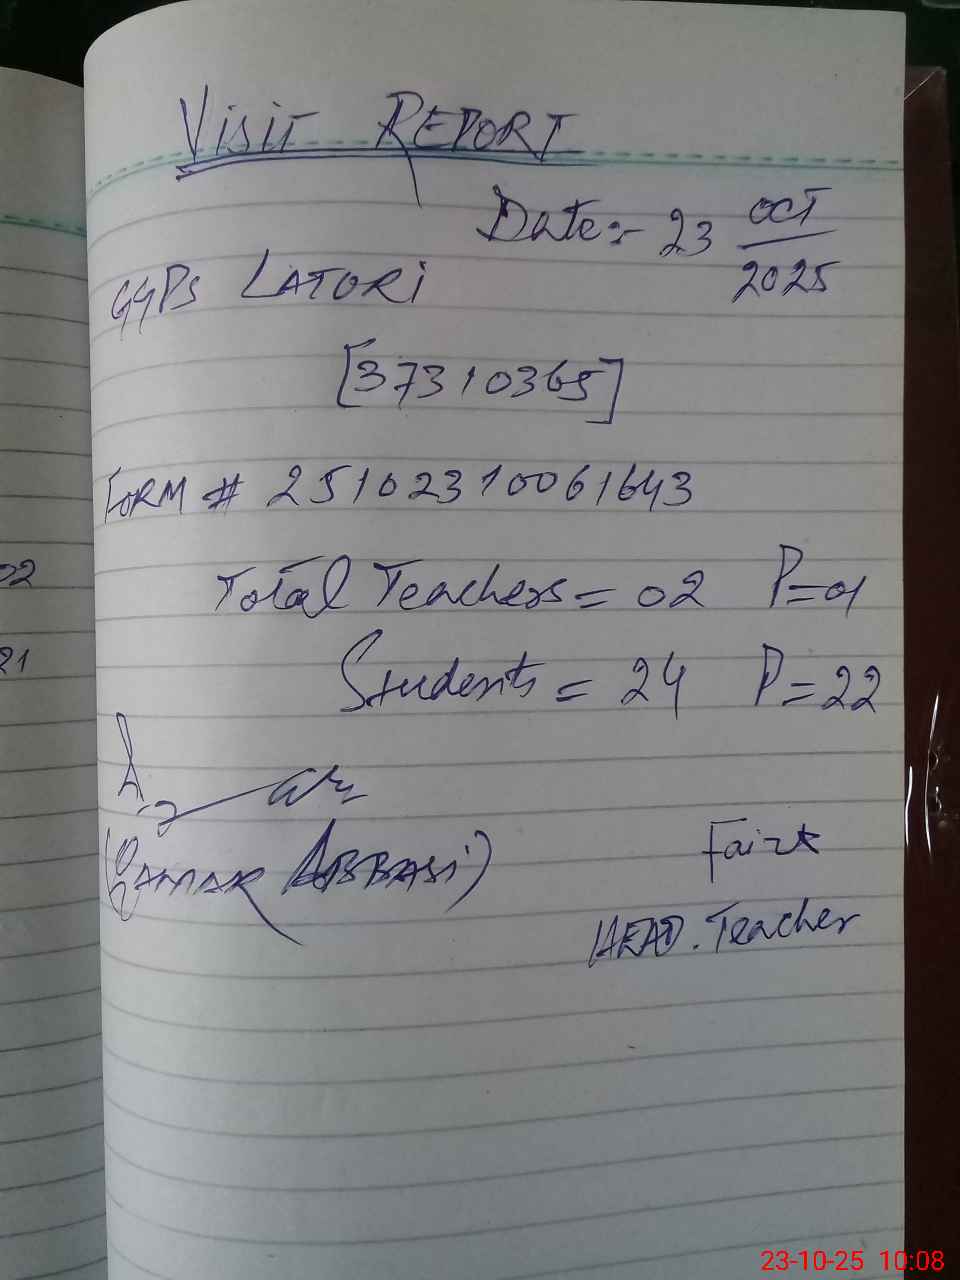 VISIT REPORT
Date:- 23 OCT
2025
GGPS LATORI
[37310365]
FORM # 25102310061643
Total Teachers = 02 P=01
Students = 24 P=22
02
21
(QAMAR ABBASI)
HEAD. Teacher
23-10-25 10:08